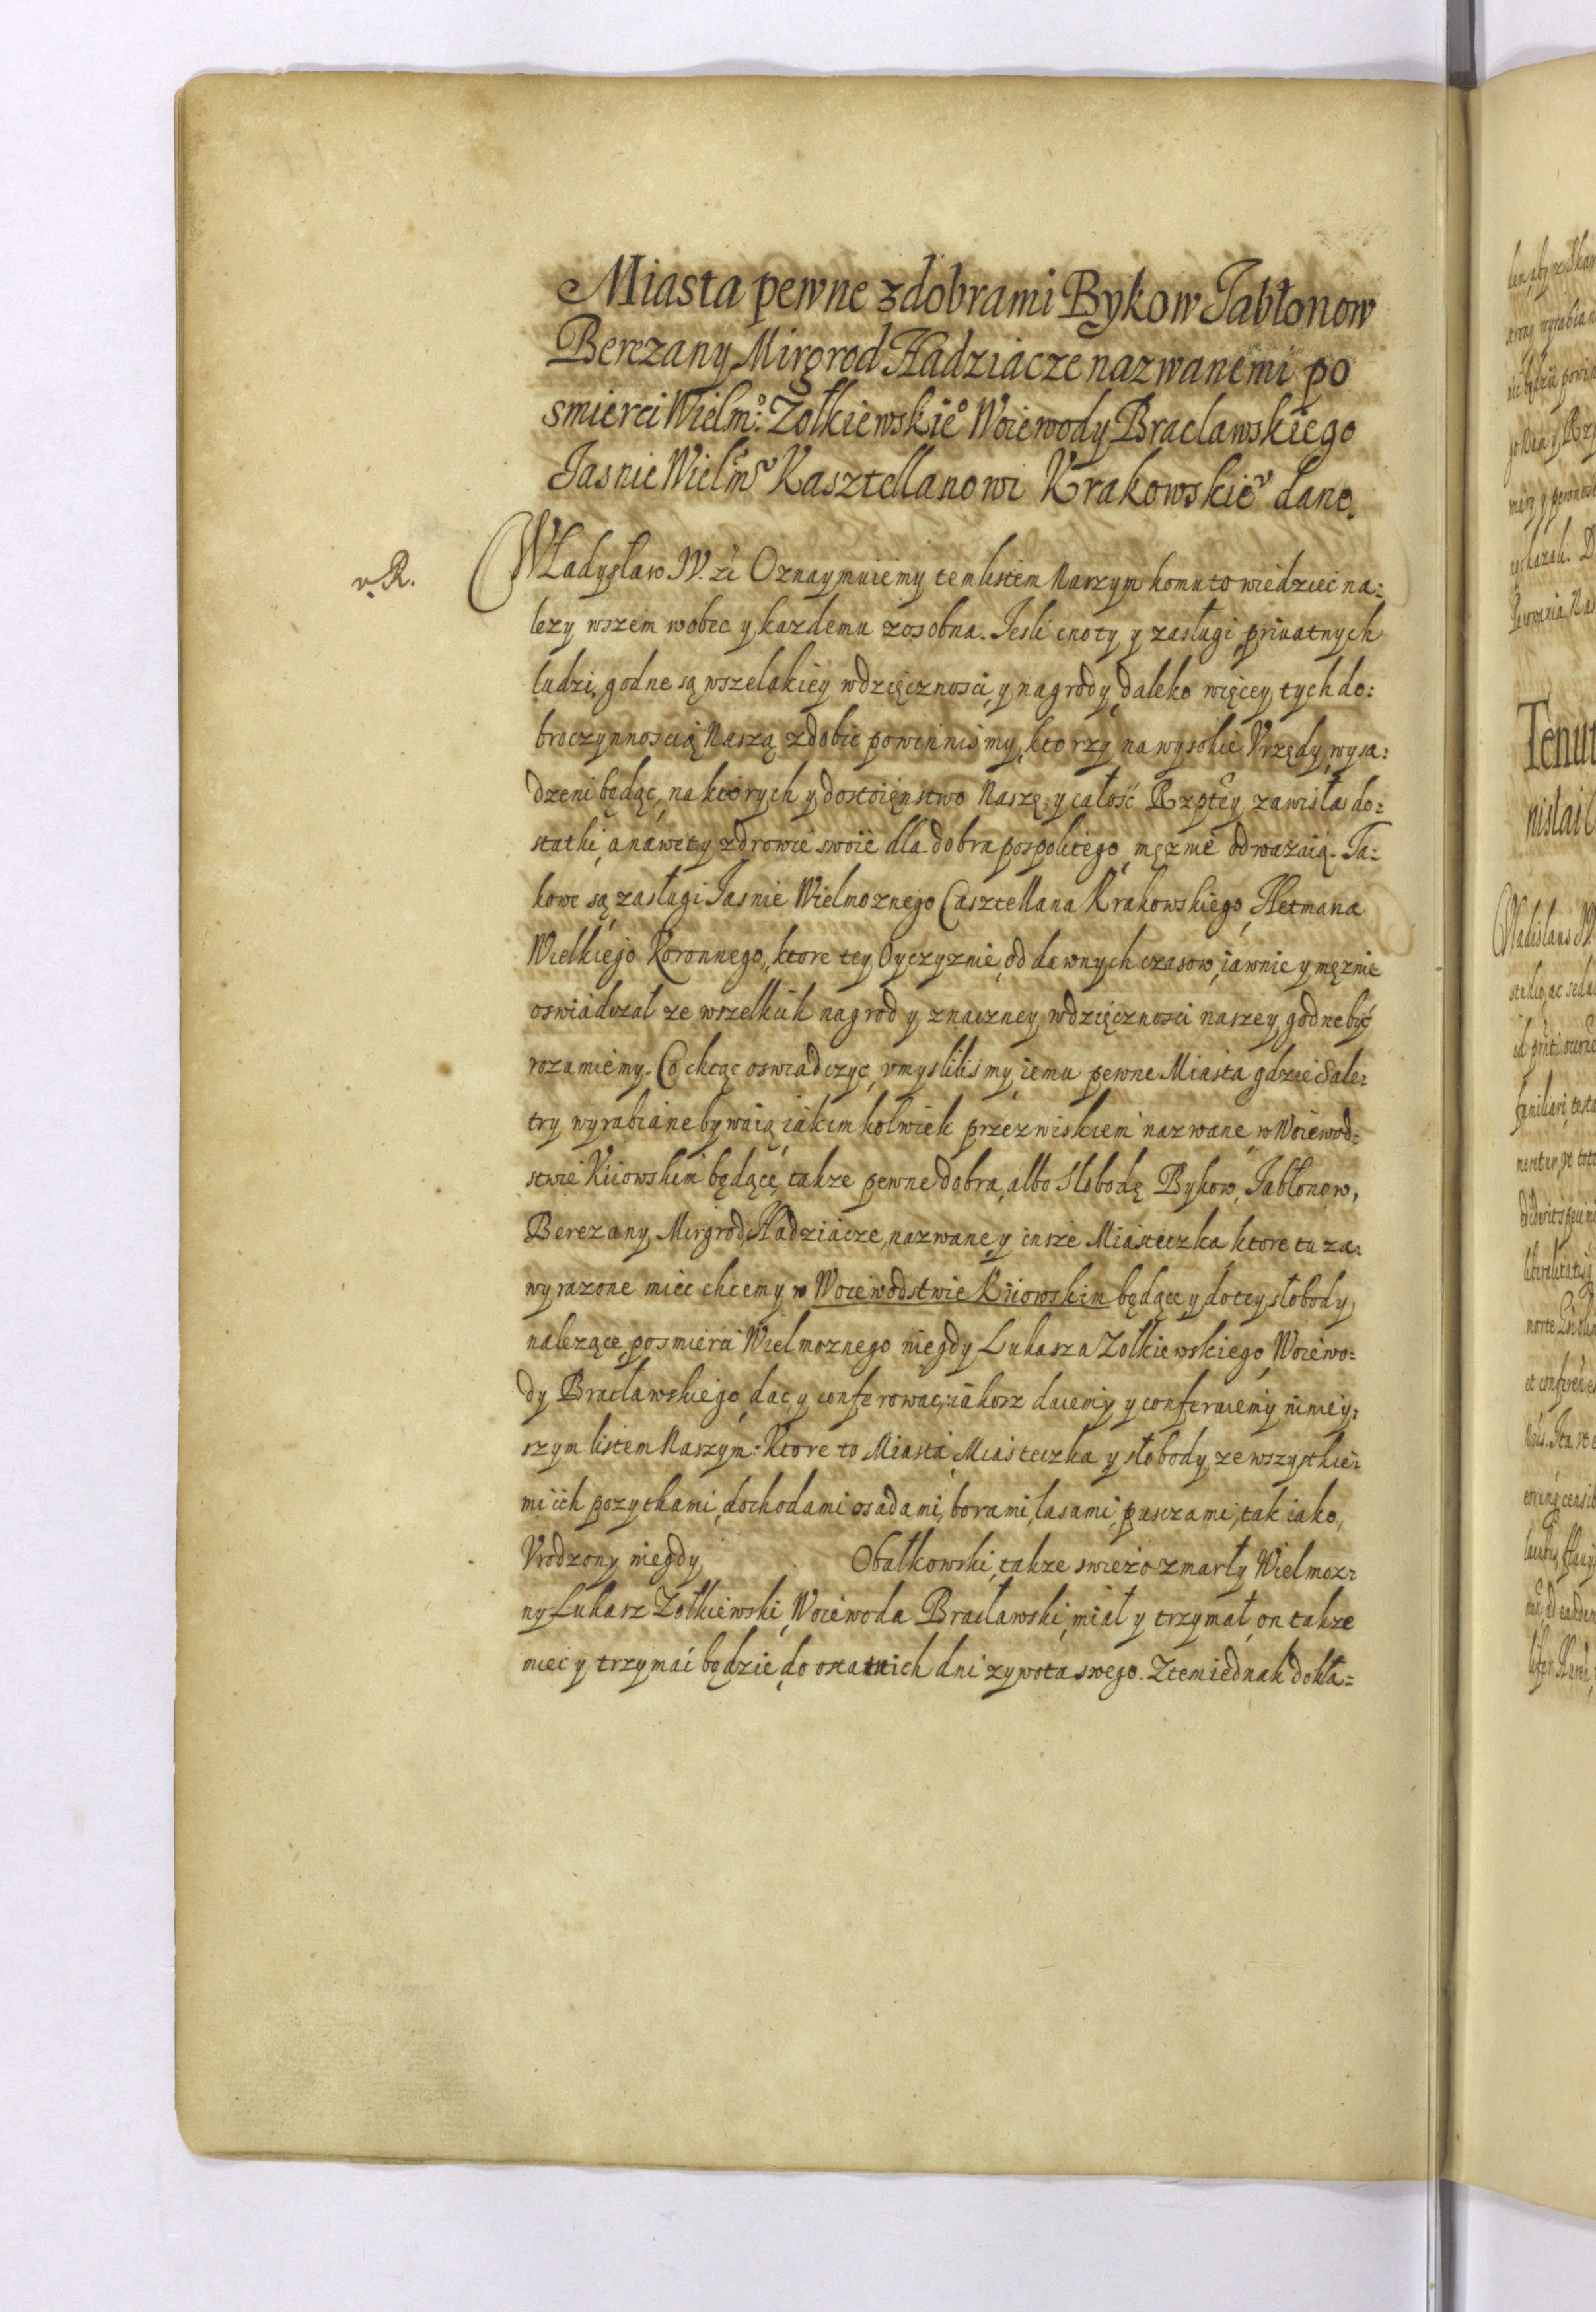 Miasta pewne z dobrami Bykow Jabłonow
Berezany Mirgrod Hadziacze nazwanemi po
smierci Wielm:º Zołkiewskiº Woiewody Braclawskiego
Jasnie Wielmu Kasztellanowi Krakowskieu dane.
v. R.
Władysław IV. etc Oznaymuiemy tem listem Naszym komu to wiedziec na:
lezy wszem wobec y kazdemu zosobna. Jesli cnoty y zasługi priuatnych
ludzi, godne są wszelakiey wdzięcznosci, y nagrody, daleko więcey tych do:
broczynnoscią Naszą zdobic powinnismy, ktorzy na wysokie Vrzędy wysa:
dzeni będąc, na ktorych y dostoięnstwo Naszę, y całość Rzptey zawisła do:
statki, a nawet y zdrowie swoie dla dobra pospolitego, męznie odwazaią. Ta:
kowe są zasługi Jasnie Wielmoznego Casztellana Krakowskiego, Hetmana
Wielkiego Koronnego, ktore tey Oyczyznie, od dawnych czasow, iawnie y męznie
oswiadczał ze wszelkich nagrod y znaczney wdzięcznosci naszey godne być
rozumiemy. Co chcąc oswiadczyc, vmyslilismy iemu pewne Miasta gdzie Sale:
try wyrabiane bywaią iakimkolwiek przezwiskiem nazwane w Woiewod:
stwie Kiiowskim będące, takze pewne dobra, albo Slobodę Bykow, Jabłonow,
Berezany Mirgrod, Hadziacze, nazwane y insze Miasteczka ktore tu za
wyrazone miec chcemy w Woiewodstwie Kiiowskim będące y do tey słobody
nalezące, po smierci Wielmoznego niegdy Lukasza Zołkiewskiego Woiewo:
dy Bracławskiego dac y conferowac, iakosz daiemy y conferuiemy niniey:
szym listem Naszym: Ktore to Miasta Miasteczka y słobody ze wszystkie:
mi ich pozytkami, dochodami osadami, borami, lasami, puszczami, tak iako,
Vrodzony niegdy Obałkowski, takze swiezo zmarły Wielmoz:
ny Lukasz Zołkiewski, Woiewoda Bracławski, miał y trzymał, on takze
miec y trzymac będzie do ostatnich dni zywota swego. Z tem iednak dokła: